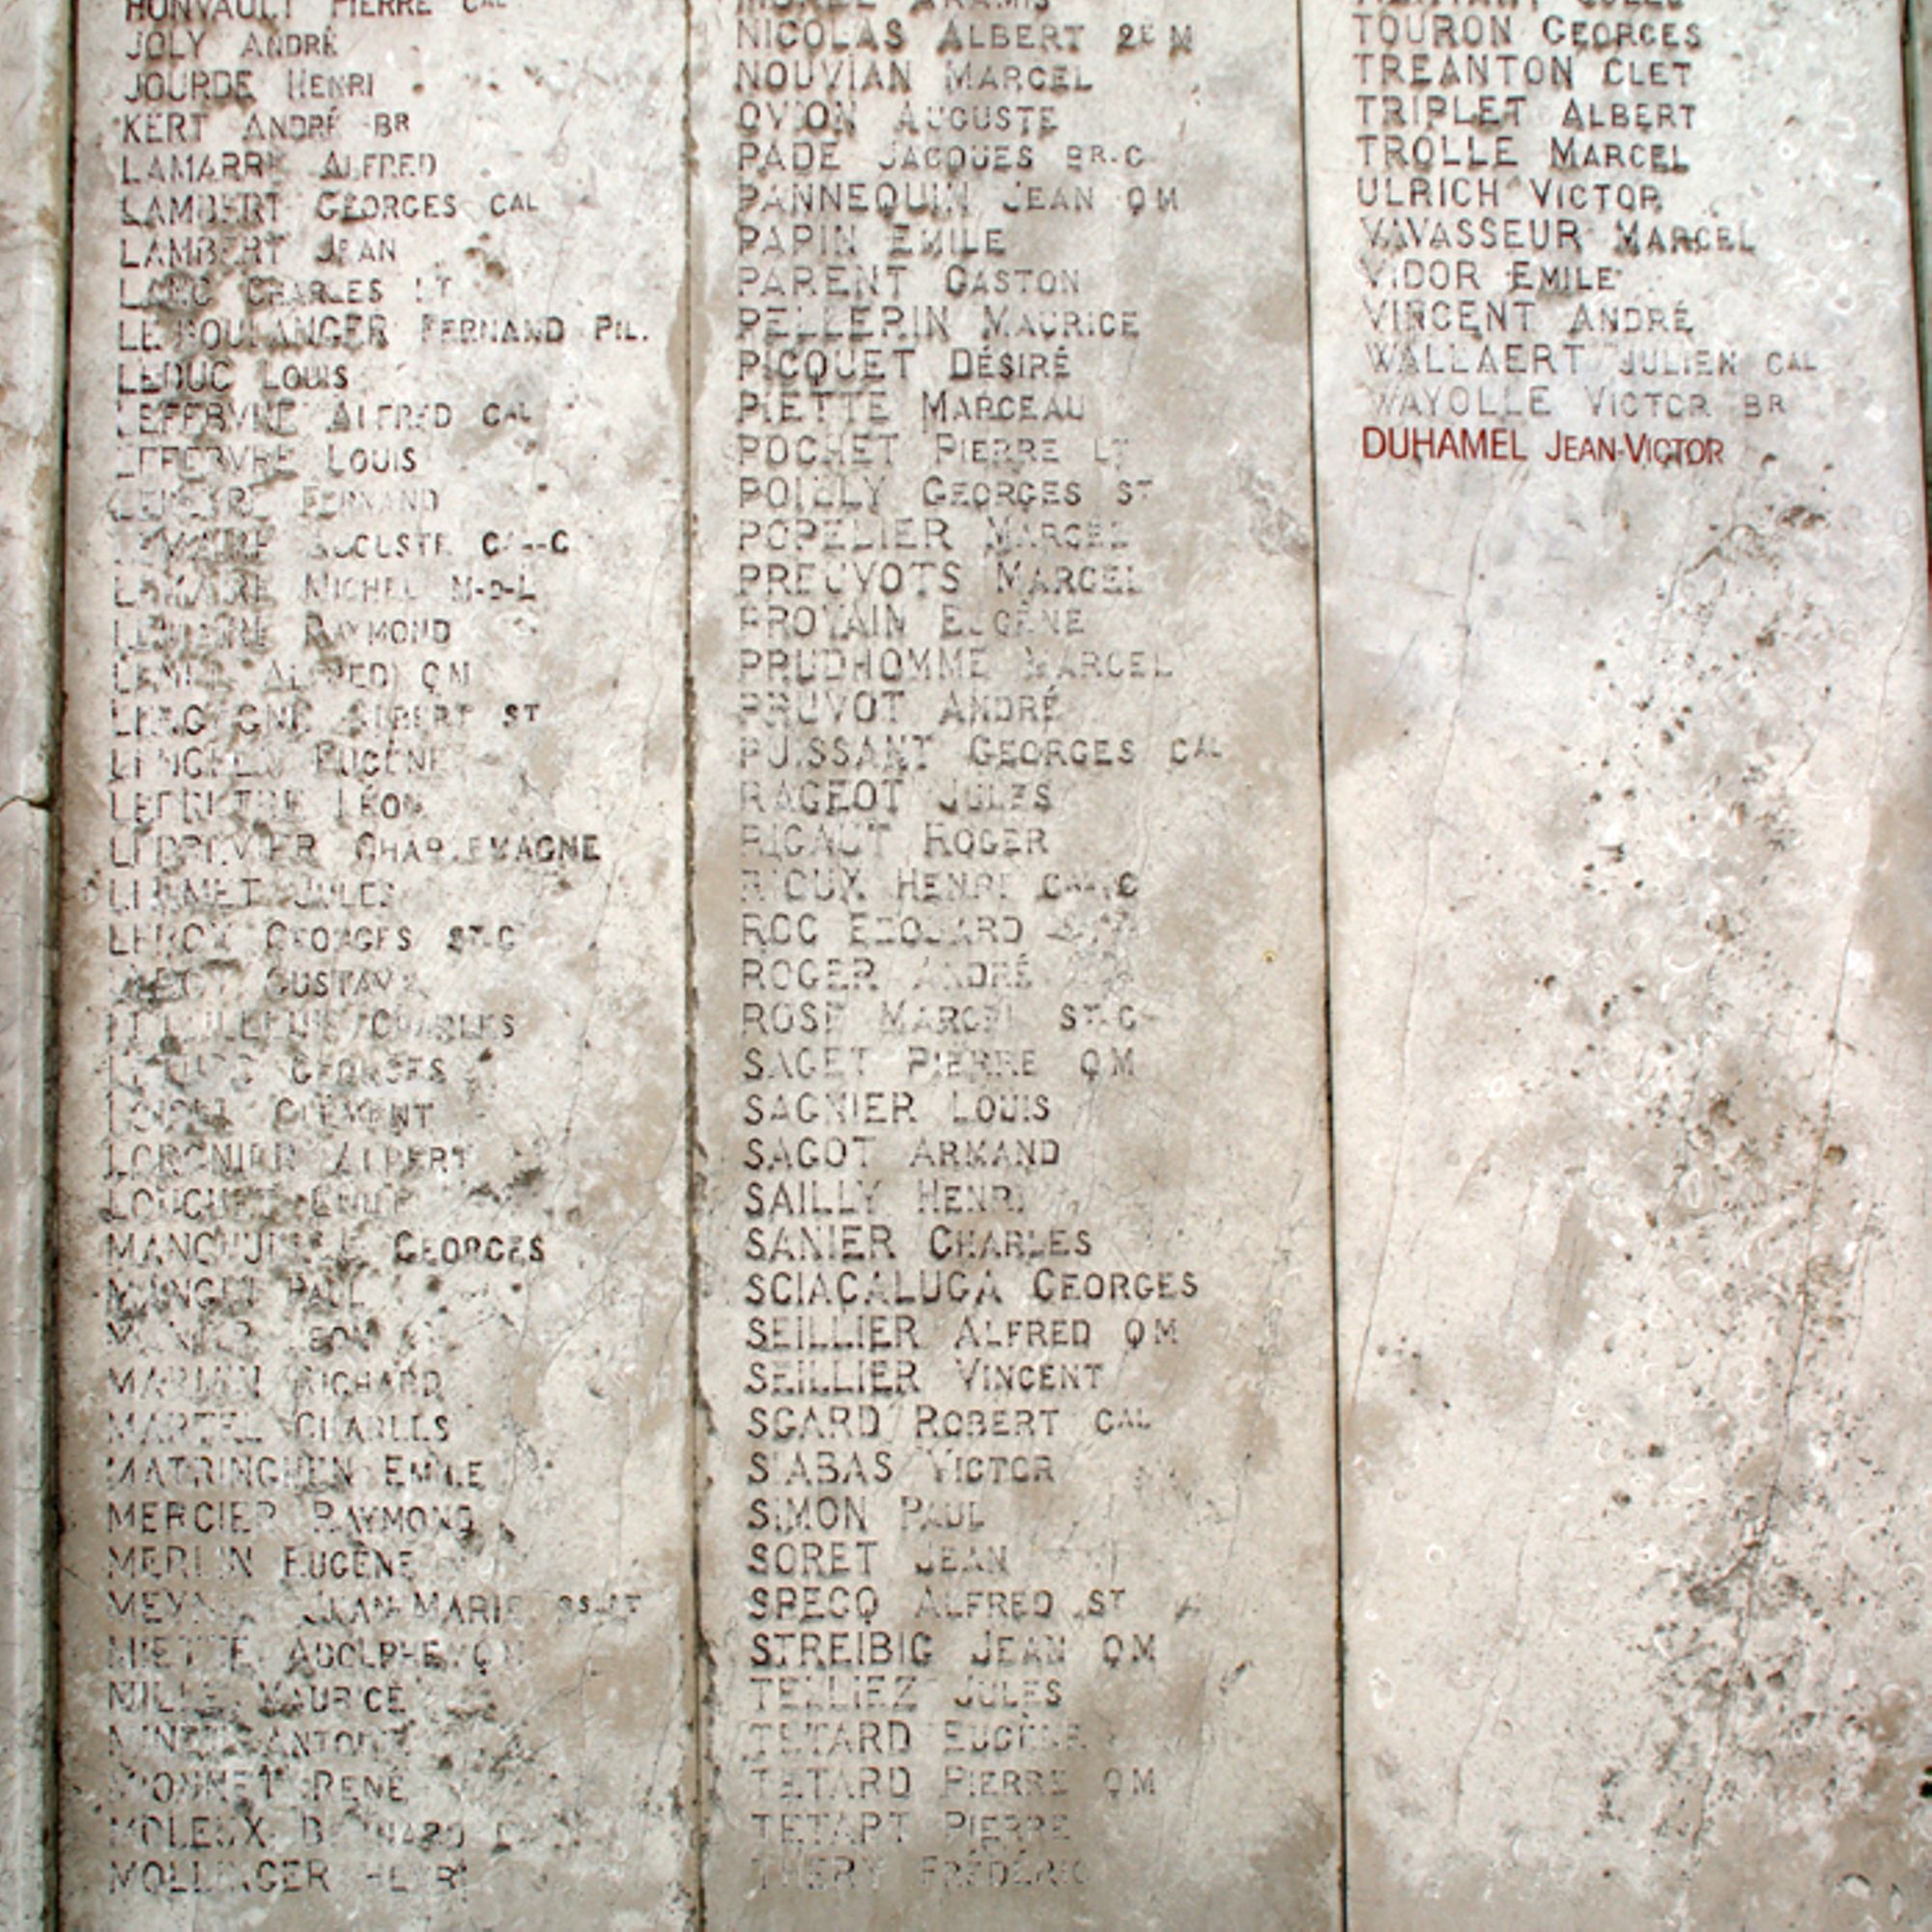 HONVAULT PIERRE CAL
JOLY ANDRÉ
JOURDE HENRI
KERT ANDRÉ BR
LAMARRE ALFRED
LAMBERT GEORGES CAL
LAMBERT JEAN
CHARLES LT
LE BOULANGER FERNAND PIL.
LEDUC LOUIS
LEFEBVRE ALFRED CAL
LEFEBVRE LOUIS
FERNAND
LEMAIRE AUGUSTE
LEMAIRE MICHEL M-D-L
RAYMOND
ALFRED QM
ALBERT ST
EUGÈNE
LEPRETRE LÉON
CHARLEMAGNE
JULES
LEROY GEORGES ST-C
GUSTAVE
CHARLES
GEORGES
CLÉMENT
LORGNIER ALBERT
LOUCHET EMILE
GEORGES
PAUL
RICHARD
MARTEL CHARLES
MATRINGHEN EMILE
MERCIER RAYMOND
MERLIN EUGÈNE
JEAN-MARIE
MIETTE ADOLPHE QM
MAURICE
ANTOINE
RENÉ
MOLEUX BERNARD
MOLLINGER HENRI
NICOLAS ALBERT 2E M
NOUVIAN MARCEL
OVION AUGUSTE
PADE JACQUES BR-C
PANNEQUIN JEAN QM
PAPIN EMILE
PARENT GASTON
PELLERIN MAURICE
PICQUET DÉSIRÉ
PIETTE MARCEAU
POCHET PIERRE LT
POILLY GEORGES ST
POPELIER MARCEL
PREUVOTS MARCEL
PROVAIN EUGÈNE
PRUDHOMME MARCEL
PRUVOT ANDRÉ
PUISSANT GEORGES CAL
RAGEOT JULES
RIGAUT ROGER
RIOUX HENRI
ROC EDOUARD
ROGER ANDRÉ
ROSE MARCEL ST-C
SAGET PIERRE QM
SAGNIER LOUIS
SAGOT ARMAND
SAILLY HENRI
SANIER CHARLES
SCIACALUGA GEORGES
SEILLIER ALFRED QM
SEILLIER VINCENT
SGARD ROBERT CAL
SIABAS VICTOR
SIMON PAUL
SORET JEAN
SPECQ ALFRED ST
STREIBIG JEAN QM
TELLIEZ JULES
TETARD EUGÈNE
TETARD PIERRE QM
TETART PIERRE
THERY FRÉDÉRIC
TOURON GEORGES
TREANTON CLET
TRIPLET ALBERT
TROLLE MARCEL
ULRICH VICTOR
VAVASSEUR MARCEL
VIDOR EMILE
VINCENT ANDRÉ
WALLAERT JULIEN CAL
WAYOLLE VICTOR BR
DUHAMEL JEAN-VICTOR